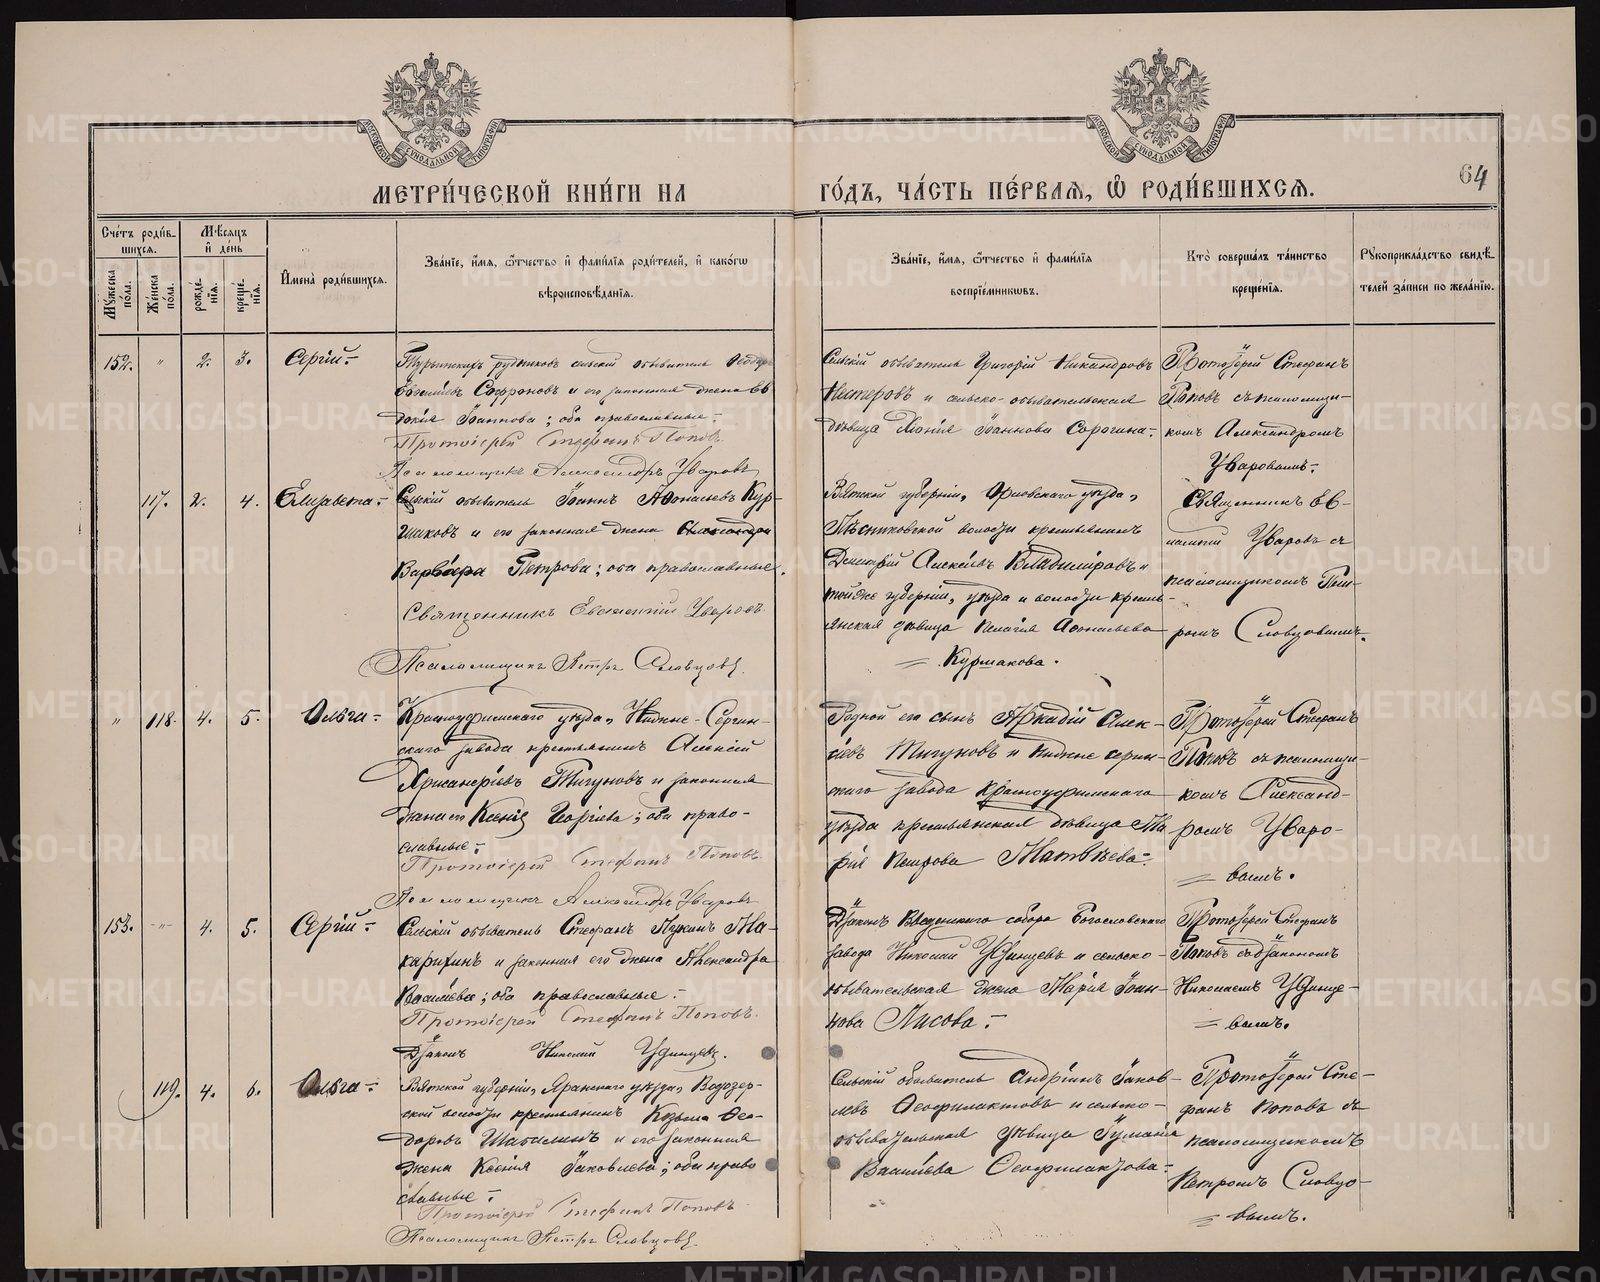 МОСКОВСКОЙ СУНОДАЛЬНОЙ ТИПОГРАФІИ
МОСКОВСКОЙ СУНОДАЛЬНОЙ ТИПОГРАФІИ
64
МЕТРИ́ЧЕСКОЙ КНИ́ГИ НА
ГО́ДЪ, ЧА́СТЬ ПЕ́РВАЯ, Ѡ РОДИ́ВШИХСЯ.
Сче́тъ роди́в-
шихся.
Му́жеска по́ла.
Же́нска по́ла.
Мѣ́сяцъ и де́нь
рожде́нія.
креще́нія.
Имена̀ роди́вшихся.
Зва́ніе, и́мя, ѻ҆́тчество и фами́лія роди́телей, и како́гѡ
вѣроисповѣ́данія.
Зва́ніе, и́мя, ѻ҆́тчество и фами́лія
воспріе́мниковъ.
Кто̀ соверша́лъ та́инство
креще́нія.
Рукоприкла́дство свидѣ́-
телей за́писи по жела́нію.
152. " 2. 3. Сергій.-
Турьинскихъ рудниковъ сельскій обыватель Ѳеодоръ
Евгеніевъ Сафроновъ и его законная жена Ев
докія Іоаннова; оба православные.-
Протоіерей Стефанъ Поповъ
Псаломщикъ Александръ Уваровъ
Сельскій обыватель Григорій Никандровъ
Нестеровъ и сельско-обывательская
дѣвица Марія Іоаннова Сорогина.-
Протоіерей Стефанъ
Поповъ съ псаломщи-
комъ Александромъ
Уваровымъ.-
117. 2. 4. Елизавета.-
Сельскій обыватель Іоаннъ Аѳонасьевъ Кур-
шаковъ и его законная жена Александра
Варвара Петрова; оба православные.
Священникъ Евгеній Уваровъ
Псаломщикъ Петръ Словцовъ.
Вятской губерніи, Орловскаго уѣзда,
волости крестьянинъ
Димитрій Алексѣевъ Владиміровъ и
тойже губерніи, уѣзда и волости кресть-
янская дѣвица Пелагія Аѳонасьева
Куршакова.
Священникъ Ев-
геній Уваровъ съ
псаломщикомъ Пет-
ромъ Словцовымъ.
" 118. 4. 5. Ольга.-
Красноуфимскаго уѣзда, Нижне-Сергин-
скаго завода крестьянинъ Алексій
Хрисанфовъ Тигуновъ и законная
жена его Ксенія Георгіева; оба право-
славные.-
Протоіерей Стефанъ Поповъ
Псаломщикъ Александръ Уваровъ
Родной его сынъ Аркадій Алек-
сіевъ Тигуновъ и Нижне Сергин-
скаго завода Красноуфимскаго
уѣзда крестьянская дѣвица Ма
рія Петрова Матвѣева.-
Протоіерей Стефанъ
Поповъ съ псаломщи-
комъ Александ-
ромъ Уваро-
вымъ.
153. -"- 4. 5. Сергій.-
Сельскій обыватель Стефанъ Лукинъ Ма-
карихинъ и законная его жена Александра
Васильева; оба православные.-
Протоіерей Стефанъ Поповъ.
Діаконъ Николай Удинцевъ.
Діаконъ Введенскаго собора Богословскаго
завода Николай Удинцевъ и сельско-
обывательская жена Марія Іоан-
нова Лисова.-
Протоіерей Стефанъ
Поповъ съ діакономъ
Николаемъ Удинце-
вымъ.
119. 4. 6. Ольга.-
Вятской губерніи, Яранскаго уѣзда, Водозер-
ской волости крестьянинъ Козьма Ѳео-
доровъ Шабалинъ и его законная
жена Ксенія Іаковлева; оба право
славные.-
Протоіерей Стефанъ Поповъ
Псаломщикъ Петръ Словцовъ.
Сельскій обыватель Андріанъ Іаков-
левъ Ѳеофилактовъ и сельско-
обывательская дѣвица Іуліанія
Васильева Ѳеофилактова.-
Протоіерей Сте-
фанъ Поповъ съ
псаломщикомъ
Петромъ Словцо-
вымъ.
METRIKI.GASO-URAL.RU